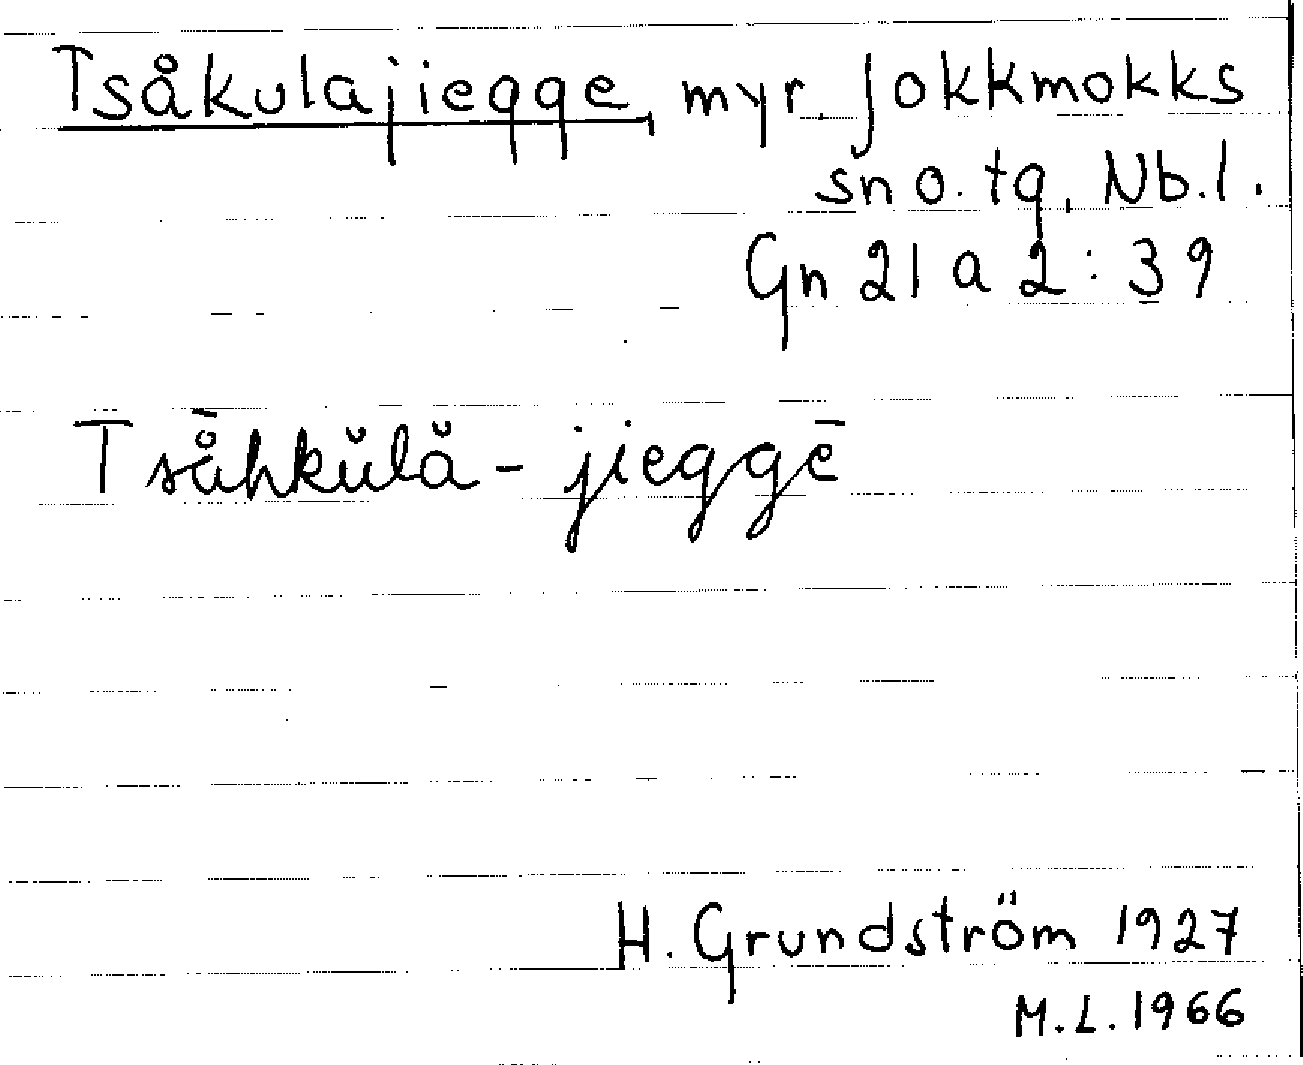 Tsåkulajiegge, myr, Jokkmokks
sn o. tg, Nb. l.
Gn 21 a 2 : 39
Tså̄hkŭlă - jieggē
H. Grundström 1927
M. L. 1966